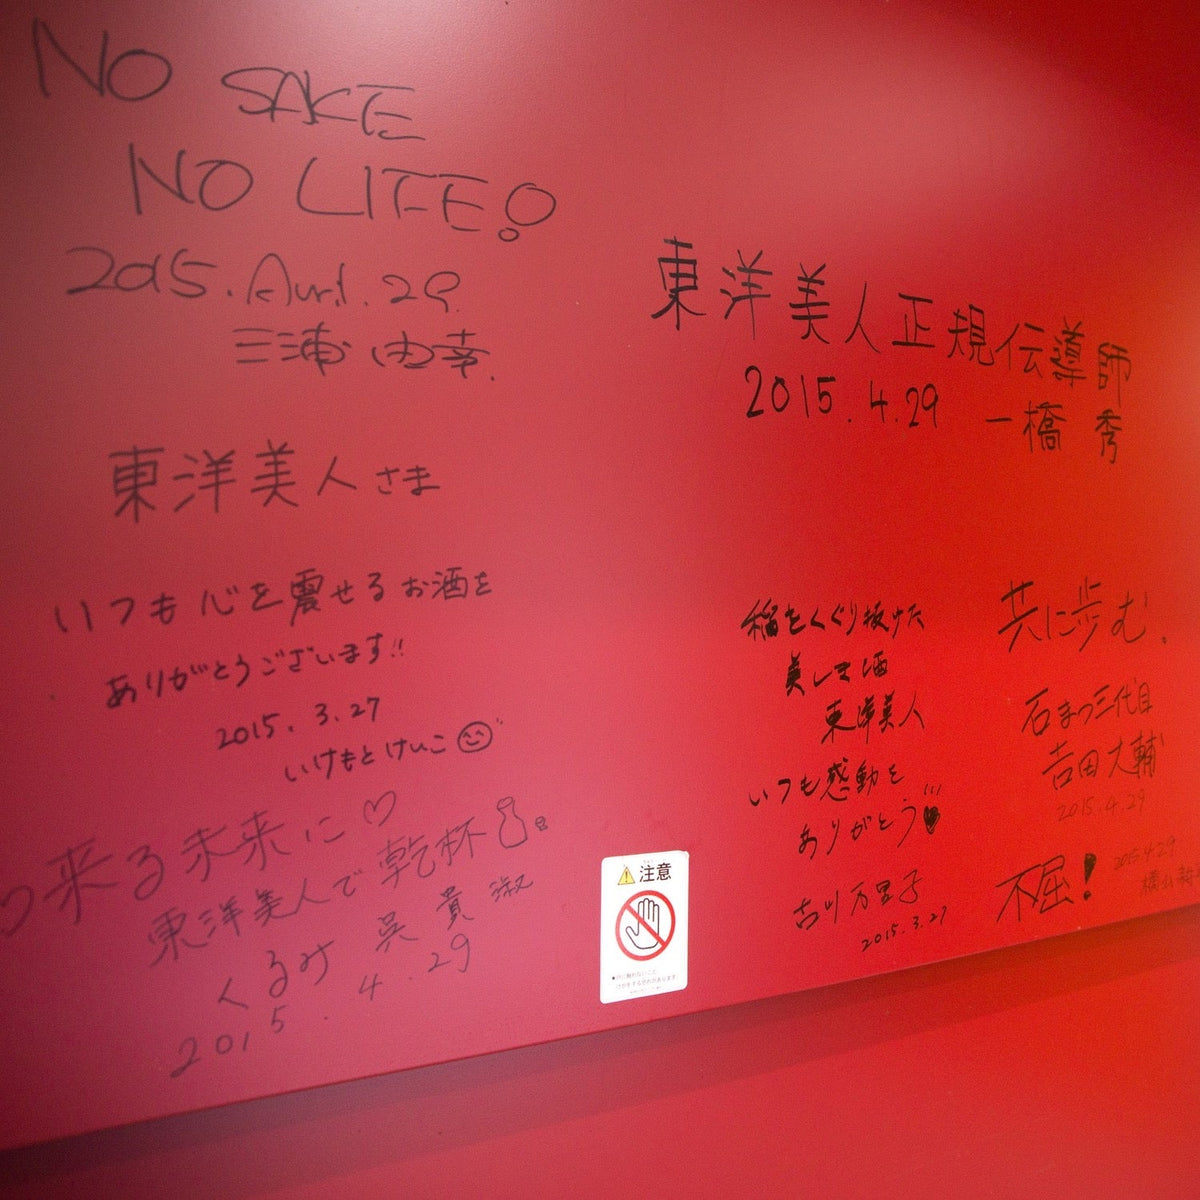 NO SAKE
NO LIFE!
2015. April. 29
三浦 由幸.
東洋美人さま
いつも心を震せるお酒を
ありがとうございます!!
2015. 3. 27
いけもと けいこ
来る未来に♡
東洋美人で乾杯
くるみ 呉 貴 淑
2015. 4. 29
東洋美人正規伝導師
2015. 4. 29 一橋 秀
をくぐり抜けた
美しき酒
東洋美人
いつも感動を
ありがとう
吉川万里子
2015. 3. 27
共に歩む.
石まつ三代目
吉田大輔
2015. 4. 29
不屈! 2015 4.29
注意